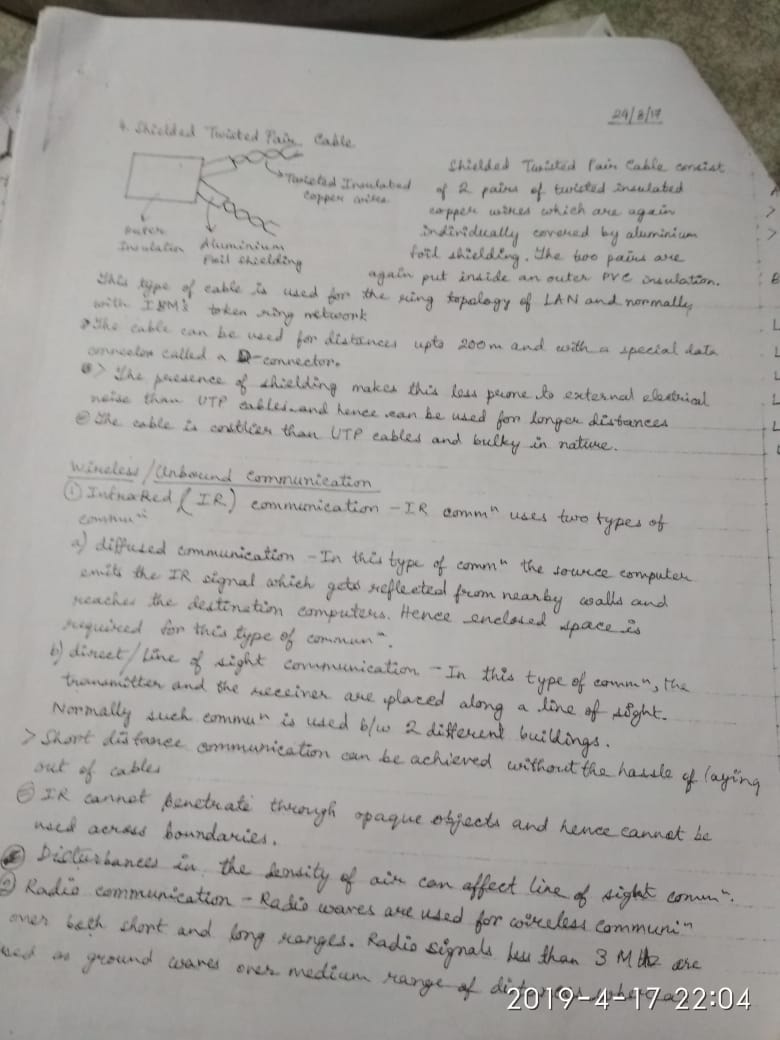 29/8/17
4. Shielded Twisted Pair Cable
Twisted Insulated
copper wires
outer
Insulation
Aluminium
Foil shielding
Shielded Twisted Pair Cable consist
of 2 pairs of twisted insulated
copper wires which are again
individually covered by aluminium
foil shielding. The two pairs are
again put inside an outer PVC insulation.
This type of cable is used for the ring topology of LAN and normally
with IBM's token ring network
The cable can be used for distances upto 200m and with a special data
connector called a D-connector.
> The presence of shielding makes this less prone to external electrical
noise than UTP cables and hence can be used for longer distances
The cable is costlier than UTP cables and bulky in nature.
Wireless/Unbound Communication
① InfraRed (IR) communication - IR commⁿ uses two types of
commuⁿ
a) diffused communication - In this type of commⁿ the source computer
emits the IR signal which gets reflected from nearby walls and
reaches the destination computers. Hence enclosed space is
required for this type of communⁿ.
b) direct/line of sight communication - In this type of commⁿ, the
transmitter and the receiver are placed along a line of sight.
Normally such commuⁿ is used b/w 2 different buildings.
> Short distance communication can be achieved without the hassle of laying
out of cables
IR cannot penetrate through opaque objects and hence cannot be
used across boundaries.
Disturbances in the density of air can affect line of sight commⁿ.
② Radio communication - Radio waves are used for wireless communiⁿ
over both short and long ranges. Radio signals less than 3 MHz are
as ground waves over medium range of
2019-4-17 22:04